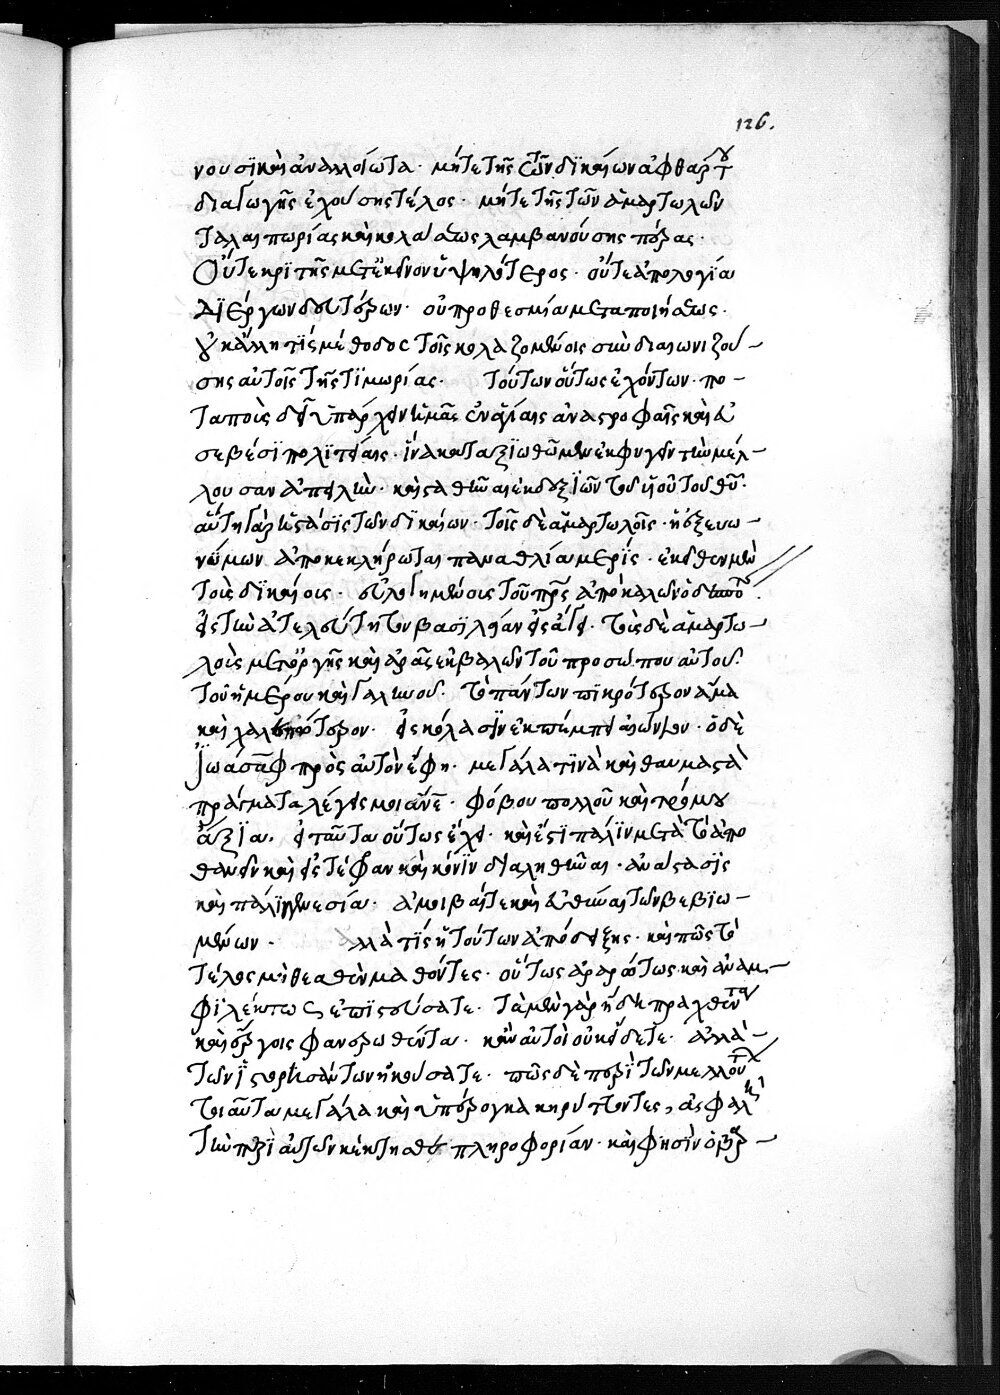 126.
νουσϊ καὶ ἀναλλοίωτα· μήτε τῆς τῶν δϊκαίων ἀφθάρτου
διαγωγῆς ἐχούσης τέλος· μήτε τῆς τῶν ἁμαρτωλῶν
ταλαιπωρίας καὶ κολάσεως λαμβανούσης πέρας·
Οὔτε κρϊτὴς μετ' ἐκεῖνον ὑψηλότερος· οὔτε ἀπολογία
δϊ ἔργων δευτέρων· οὐ προθεσμία μεταποιήσεως·
οὐκ ἄλλη τϊς μέθοδος τοῖς κολαζομένοις συνδιαιωνιζού-
σης αὐτοῖς τῆς τϊμωρίας· τούτων οὕτως ἐχόντων· πο-
ταποὺς δεῖ ὑπάρχειν ἡμᾶς ἐν ἁγίαις ἀναστροφαῖς καὶ εὐ
σεβέσϊ πολϊτείαις· ἵνα καταξϊωθῶμεν ἐκφυγεῖν τὴν μέλ-
λουσαν ἀπειλὴν· καὶ σταθῆναι ἐκ δεξϊῶν τοῦ υἱοῦ τοῦ θεοῦ·
αὕτη γὰρ ἡ στάσϊς τῶν δϊκαίων· τοῖς δὲ ἁμαρτωλοῖς· ἡ ἐξ εὐω-
νύμων ἀποκεκλήρωται παναθλία μερὶς· ἐκεῖθεν μὲν
τοὺς δϊκαίους· εὐλογημένους τοῦ πατρὸς ἀποκαλῶν ὁ δεσπότης
εἰς τὴν ἀτελεύτητον βασϊλείαν εἰσάγει· τοὺς δὲ ἁμαρτω-
λοὺς μετ' ὀργῆς καὶ ἀρᾶς ἐκβαλὼν τοῦ προσώπου αὐτοῦ·
τοῦ ἡμέρου καὶ γαληνοῦ· τὸ πάντων πϊκρότερον ἅμα
καὶ χαλεπώτερον· εἰς κόλασϊν ἐκπέμπει αἰώνιον· ὁ δὲ
Ἰωάσαφ πρὸς αὐτὸν ἔφη· μεγάλα τϊνὰ καὶ θαυμαστὰ
πράγματα λέγεις μοι ἄνθρωπε· φόβου πολλοῦ καὶ τρόμου
ἄξϊα· εἰ ταῦτα οὕτως ἔχει· καὶ ἔστϊ πάλϊν μετὰ τὸ ἀπο
θανεῖν καὶ εἰς τέφραν καὶ κόνϊν διαλυθῆναι· ἀνάστασϊς
καὶ παλϊγγενεσία· ἀμοιβαί τε καὶ εὐθύναι τῶν βεβϊω-
μένων· ἀλλὰ τίς ἡ τούτων ἀπόδειξις· καὶ πῶς τὸ
τέλος μὴ θεαθὲν μαθόντες· οὕτως ἀραρότως καὶ ἀναμ-
φϊλέκτως ἐπϊστεύσατε· τὰ μὲν γὰρ ἤδη πραχθέντα
καὶ ἔργοις φανερωθέντα· κἂν αὐτοὶ οὐκ εἴδετε· ἀλλὰ-
τῶν ἱστορησάντων ἠκούσατε· πῶς δὲ περὶ τῶν μελλόντων
τοιαῦτα μεγάλα καὶ ὑπέρογκα κηρύττοντες, ἀσφαλῆ
τὴν περὶ αὐτῶν κέκτησθε πληροφορίαν· καὶ φησὶν ὁ βαρ-